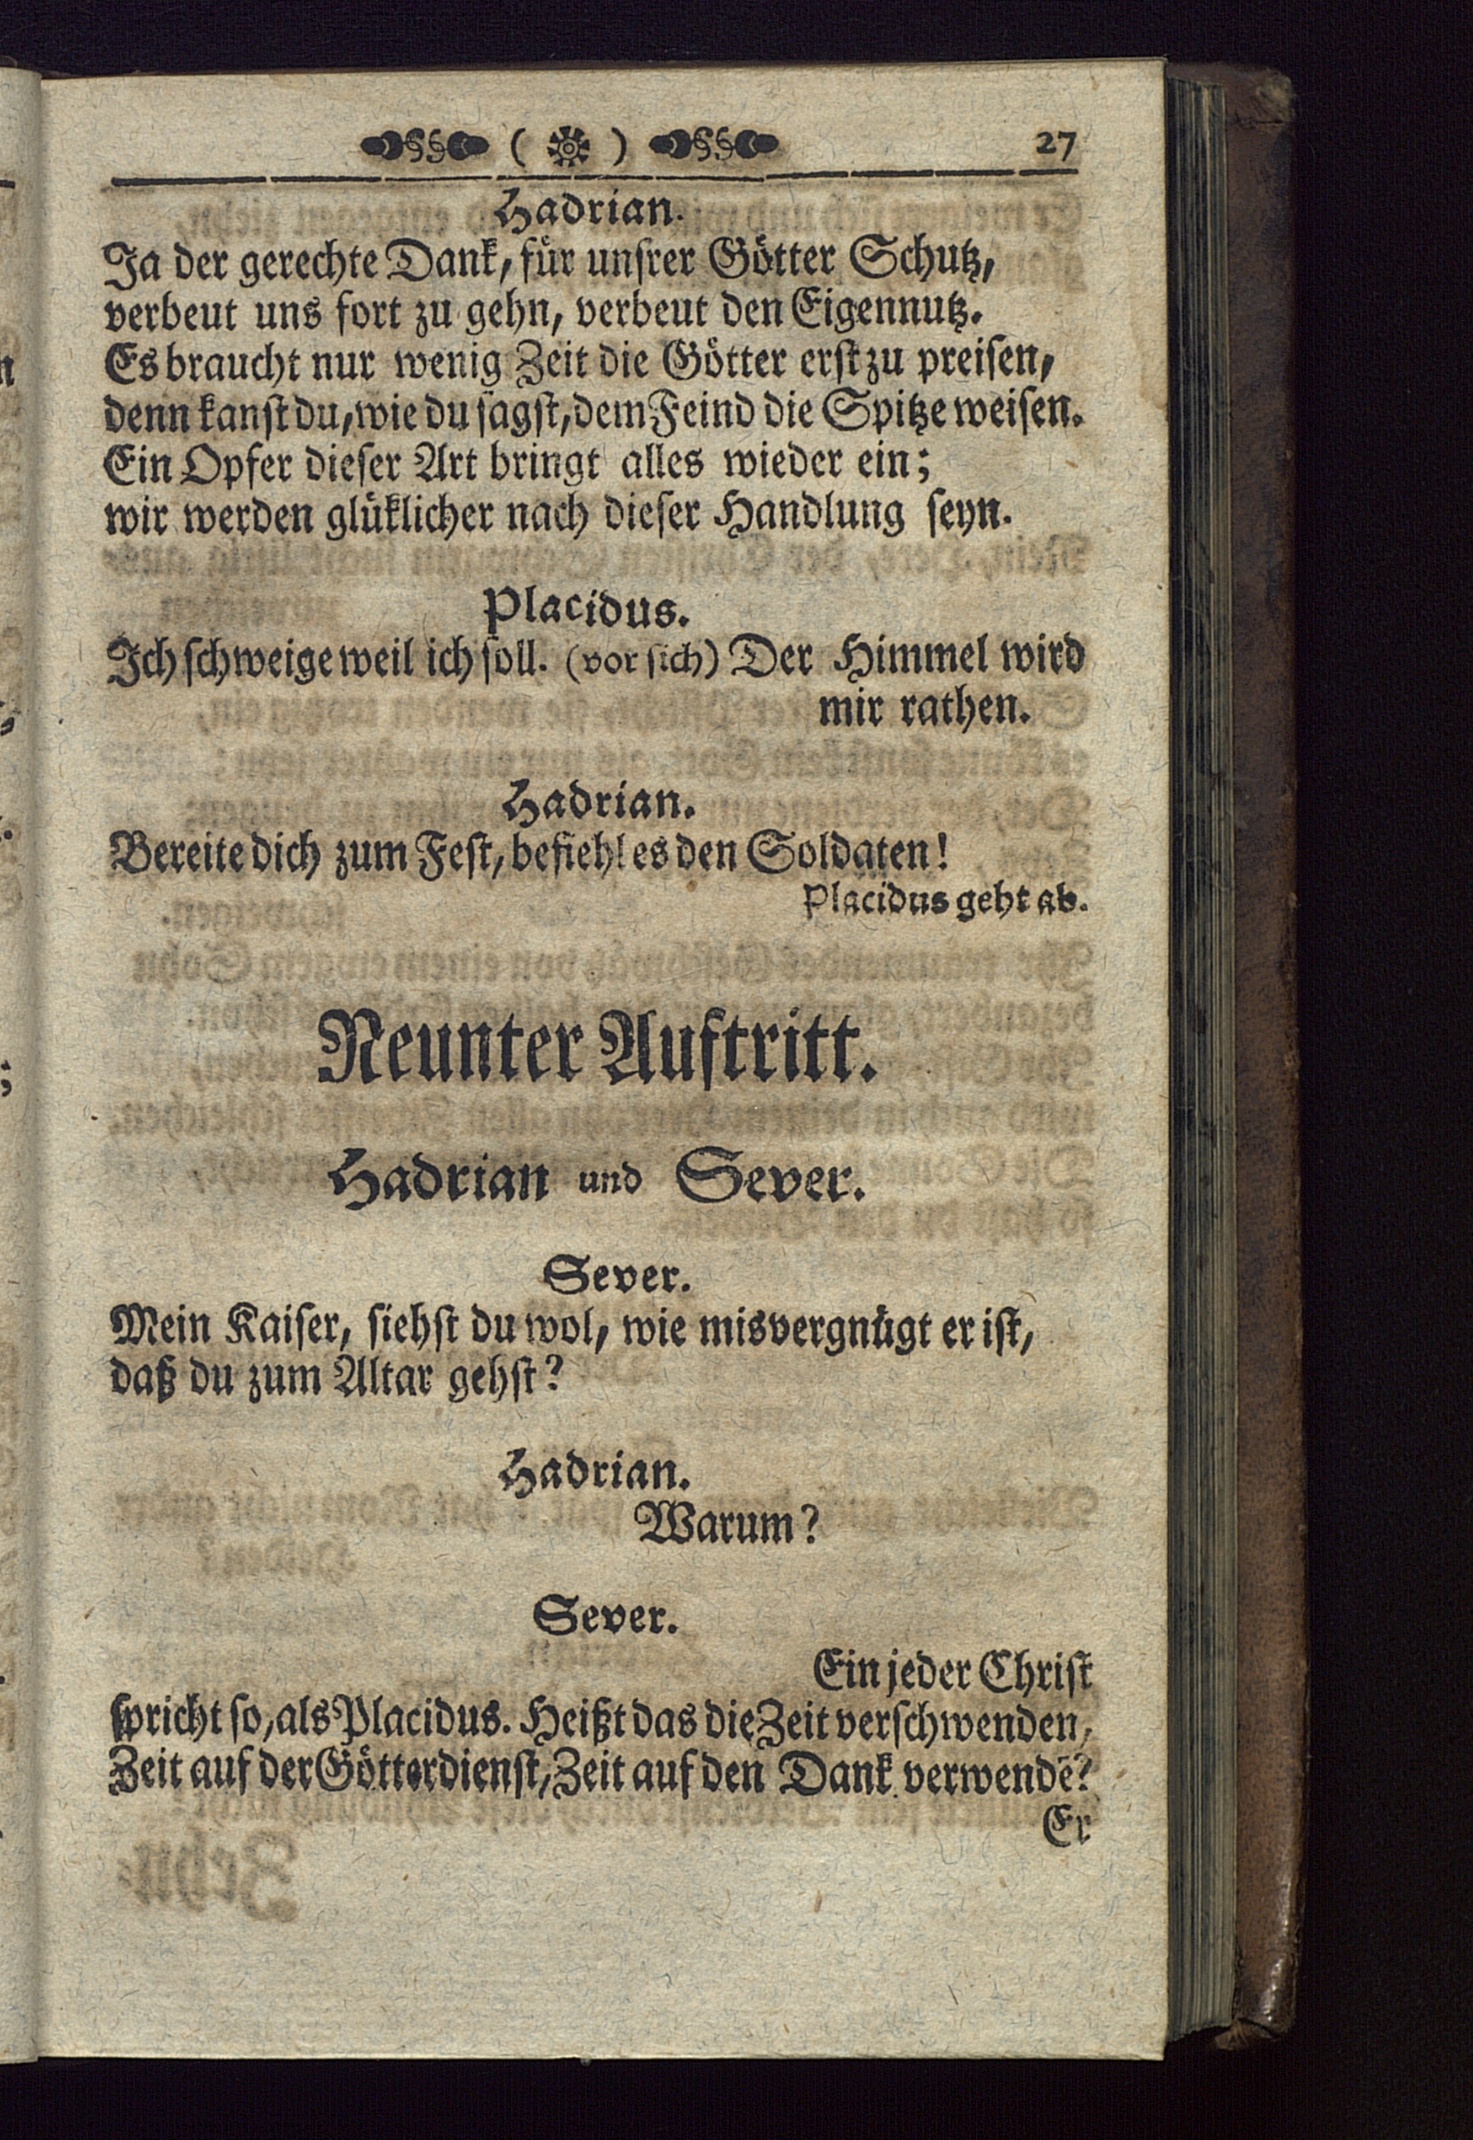 ( ) 27
Hadrian.
Ja der gerechte Dank, für unsrer Götter Schutz,
verbeut uns fort zu gehn, verbeut den Eigennutz.
Es braucht nur wenig Zeit die Götter erst zu preisen,
denn kanst du, wie du sagst, dem Feind die Spitze weisen.
Ein Opfer dieser Art bringt alles wieder ein;
wir werden glüklicher nach dieser Handlung seyn.
Placidus.
Ich schweige weil ich soll. (vor sich) Der Himmel wird
mir rathen.
Hadrian.
Bereite dich zum Fest, befiehl es den Soldaten!
Placidus geht ab.
Neunter Auftritt.
Hadrian und Sever.
Sever.
Mein Kaiser, siehst du wol, wie misvergnügt er ist,
daß du zum Altar gehst?
Hadrian.
Warum?
Sever.
Ein jeder Christ
spricht so, als Placidus. Heißt das die Zeit verschwenden,
Zeit auf der Götterdienst, Zeit auf den Dank verwendē?
Er